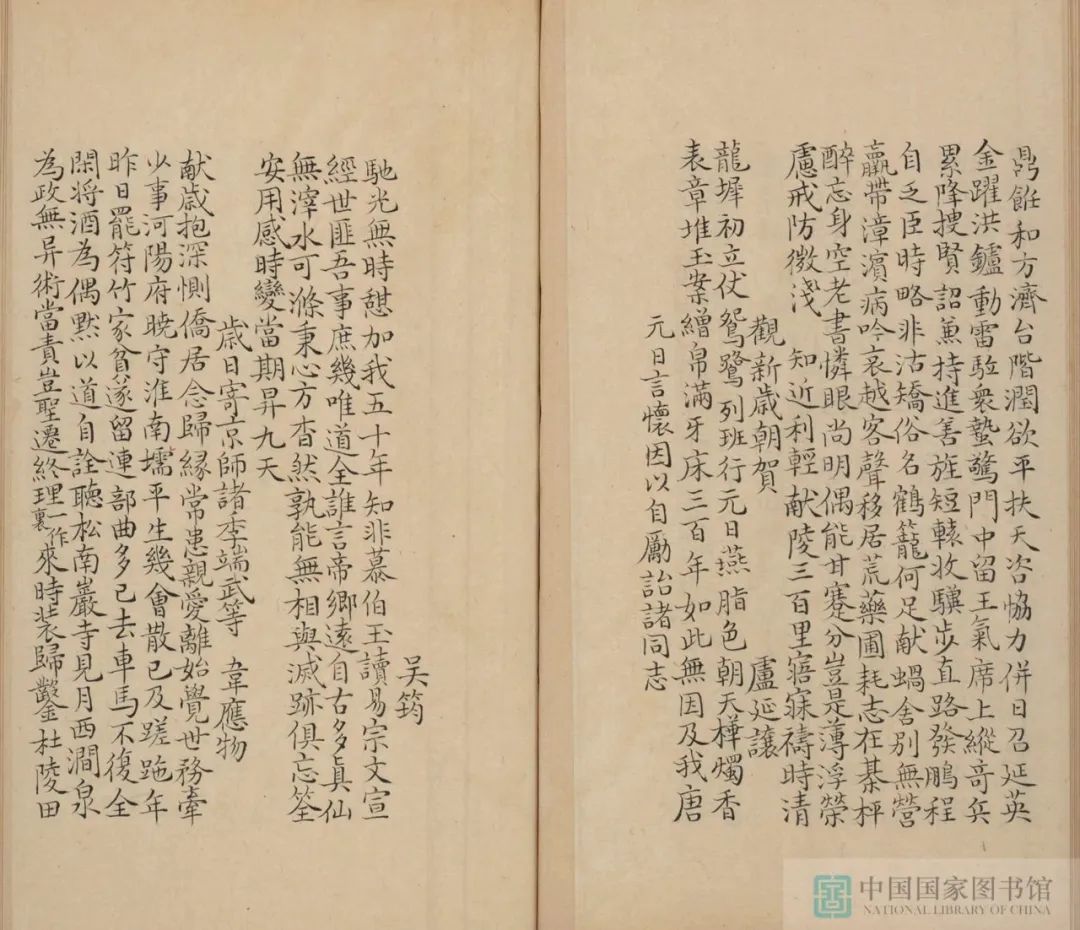 鼎飪和方濟台階潤欲平扶天咨恊力併日召延英
金躍洪鑪動雷駈衆蟄驚門中留王氣席上縱奇兵
累降搜賢詔兼持進善旌短轅收驥步直路發鵬程
自乏臣時略非沽矯俗名鶴籠何足献蝸舍別無營
羸帶漳濱病吟哀越客聲移居荒藥圃耗志在棊枰
醉忘身空老書憐眼尚明偶能甘蹇分豈是薄浮榮
慮戒防微淺 知近利輕献陵三百里寤寐禱時清
觀新歲朝賀 盧延讓
龍墀初立仗鴛鷺列班行元日燕脂色朝天樺燭香
表章堆玉案繒帛滿牙床三百年如此無因及我唐
元日言懷因以自勵詒諸同志
吳筠
馳光無時憇加我五十年知非慕伯玉讀易宗文宣
經世匪吾事庶幾唯道全誰言帝鄉遠自古多真仙
無滓水可滌秉心方杳然孰能無相與滅跡俱忘筌
安用感時變當期昇九天
歲日寄京師諸季端武等 韋應物
献歲抱深惻僑居念歸緣常患親愛離始覺世務牽
少事河陽府晚守淮南壖平生幾會散已及蹉跎年
昨日罷符竹家貧遂留連部曲多已去車馬不復全
閑將酒為偶默以道自詮聽松南巖寺見月西澗泉
為政無异術當責豈聖遷終理一作裏來時裝歸鑿杜陵田
中国国家图书馆
NATIONAL LIBRARY OF CHINA